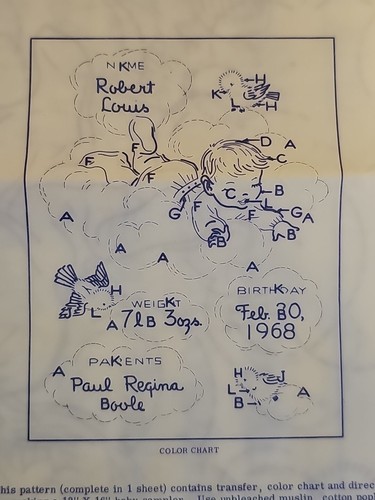 NAME
Robert
Louis
H
K
L
H
D
A
C
F
F
F
C
B
L
A
G
F
G
A
B
B
A
A
A
H
L
A
WEIGHT
7lB 3ozs.
BIRTHDAY
Feb. 20,
1968
A
PARENTS
Paul Regina
Boole
H
J
L
B
A
COLOR CHART
his pattern (complete in 1 sheet) contains transfer, color chart and direc
baby sampler. Use unbleached muslin, cotton pop